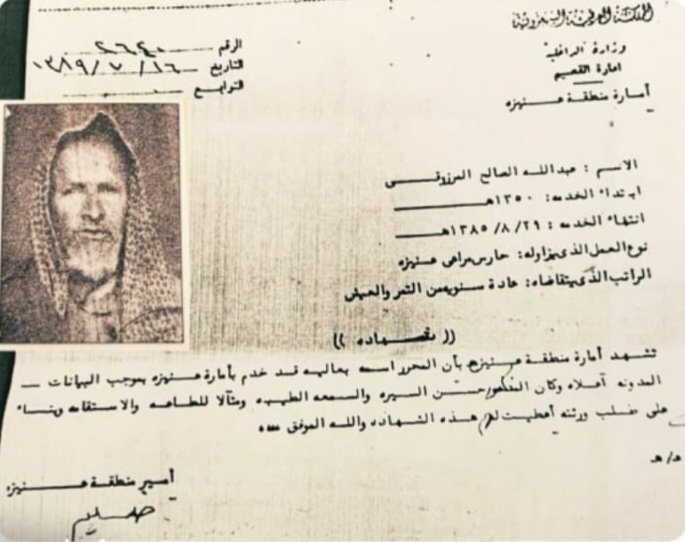 المملكة العربية السعودية
وزارة الداخلية
امارة القصيم
أمارة منطقة عنيزه
الرقم ٢٦٤٠
التاريخ ١٣٨٩/٧/١٦
التوابع
الاسم : عبدالله الصالح المرزوقي
ابتداء الخدمه : ١٣٥٠هـ
انتهاء الخدمه : ١٣٨٥/٨/٢٩هـ
نوع العمل الذى يزاوله : حارس مراعى عنيزه
الراتب الذى يتقاضاه : عادة سنويه من التمر والعيش
(( شهاده ))
تشهد أمارة منطقة عنيزه بأن المحرر اسمه بعاليه قد خدم بأمارة عنيزه بموجب البيانات
المدونه أعلاه وكان المذكور حسن السيره والسمعه الطيبه ومثالا للطاعه والاستقامه وبناء
على طلب ورثته أعطيت لهم هذه الشهاده والله الموفق
د/هـ
أمير منطقة عنيزه